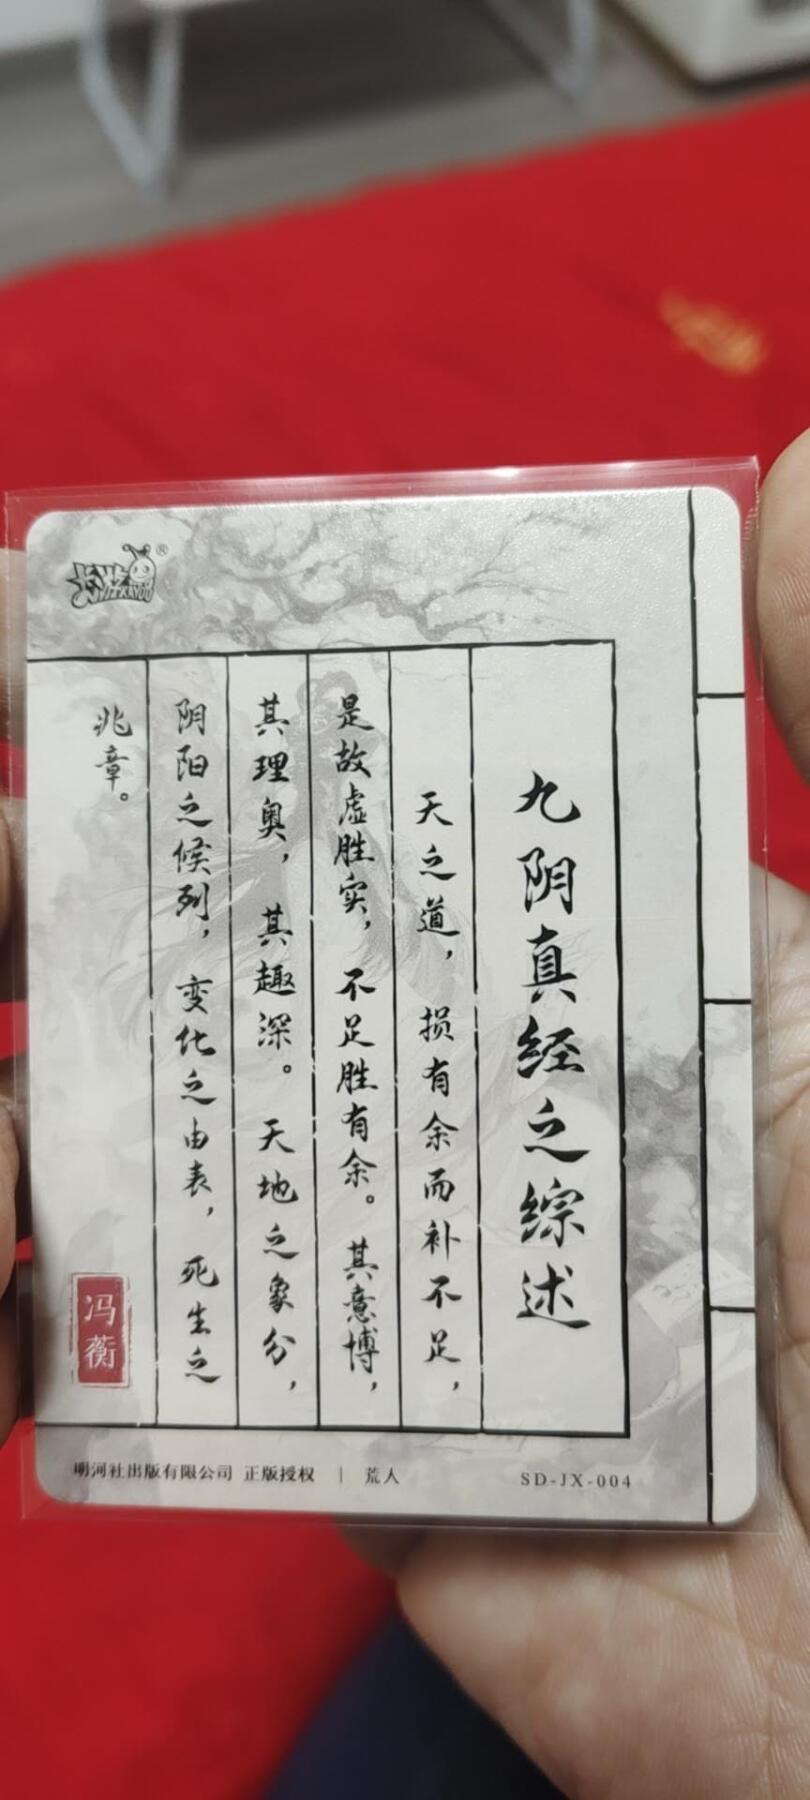 九阴真经之综述
天之道，损有余而补不足，
是故虚胜实，不足胜有余。其意博，
其理奥，其趣深。天地之象分，
阴阳之候列，变化之由表，死生之
兆章。
冯蘅
卡游 KAYOU ®
明河社出版有限公司 正版授权 | 荒人
SD-JX-004